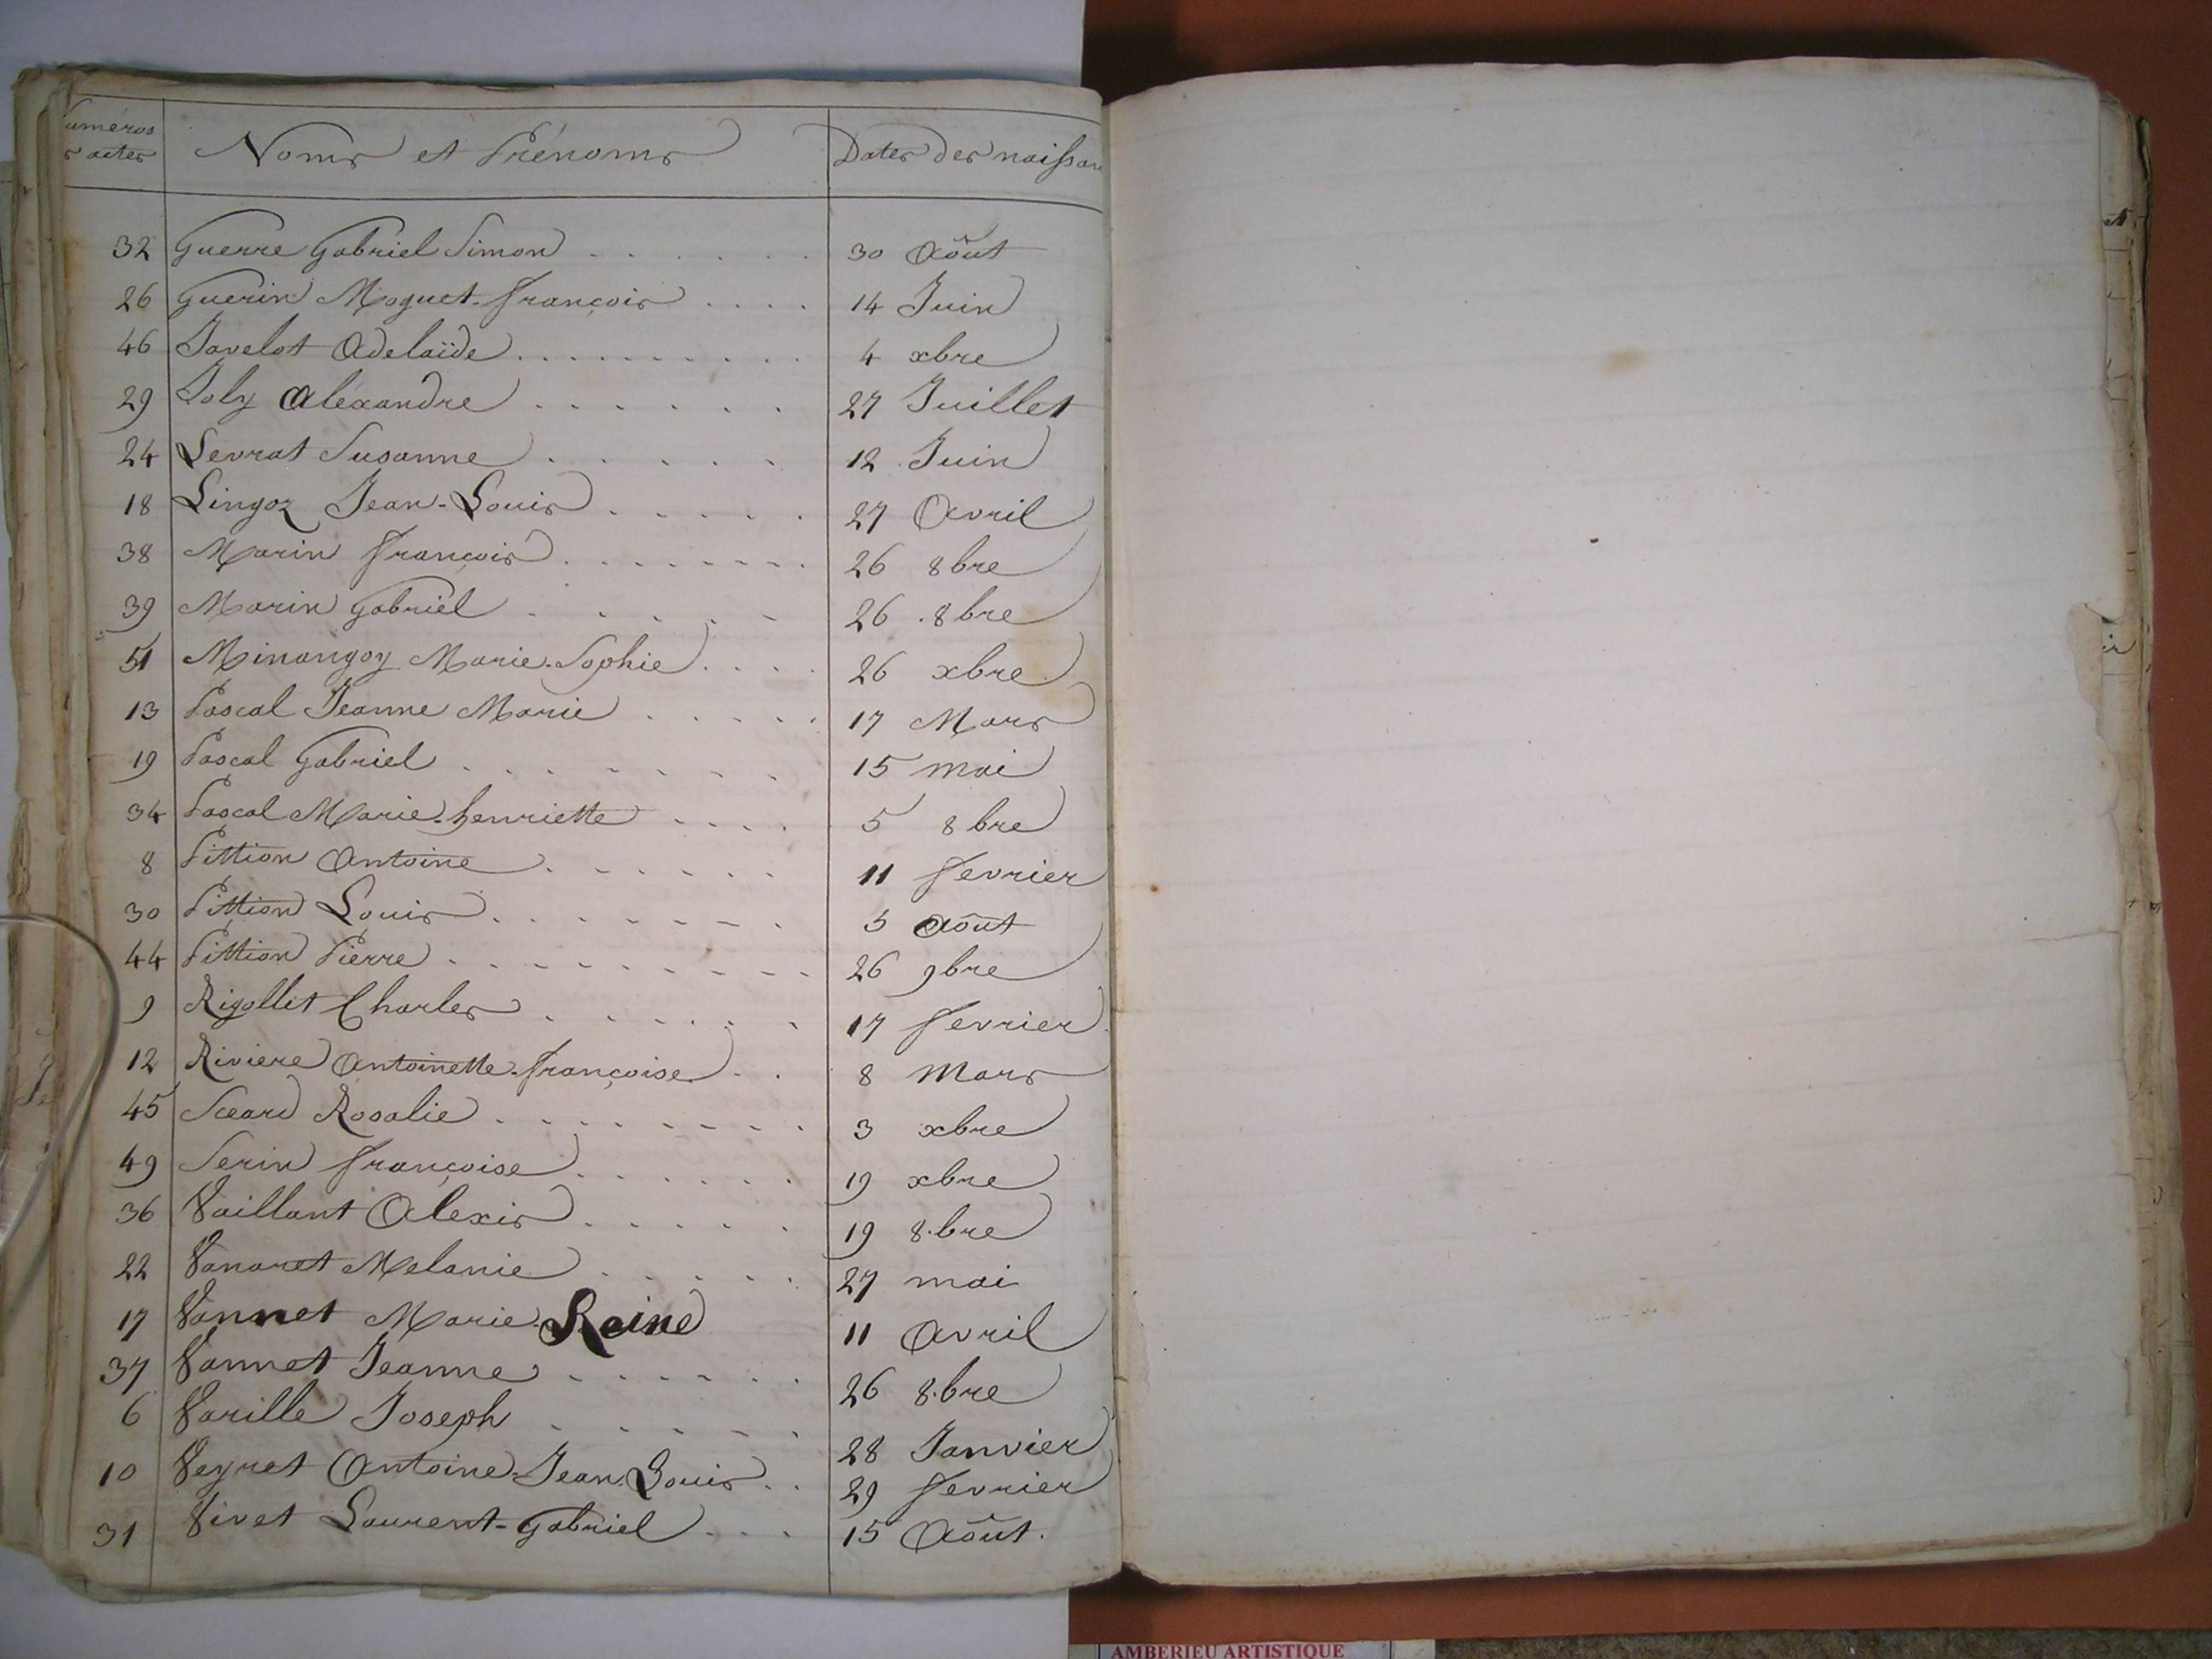 uméros
s actes
Noms et Prénoms
Dates des naissan
32 Guerre Gabriel Simon 30 Août
26 Guerin Moguet-françois 14 Juin
46 Javelot Adelaïde 4 xbre
29 Joly Alexandre 27 Juillet
24 Levrat Susanne 12 Juin
18 Lingoz Jean-Louis 27 Avril
38 Marin françois 26 8bre
39 Marin Gabriel 26 8bre
51 Minangoy Marie-Sophie 26 xbre
13 Pascal Jeanne Marie 17 Mars
19 Pascal Gabriel 15 mai
34 Pascal Marie-henriette 5 8bre
8 Pittion Antoine 11 fevrier
30 Pittion Louis 5 Août
44 Pittion Pierre 26 9bre
9 Rigollet Charles 17 fevrier
12 Riviere Antoinette-françoise 8 Mars
45 Sceard Rosalie 3 xbre
49 Serin françoise 19 xbre
36 Vaillant Alexis 19 8.bre
22 Vanaret Melanie 27 mai
17 Vannet Marie-Reine 11 Avril
37 Vannet Jeanne 26 8.bre
6 Varille Joseph 28 Janvier
10 Veyret Antoine-Jean-Louis 29 fevrier
31 Vivet Laurent-Gabriel 15 Août.
AMBERIEU ARTISTIQUE